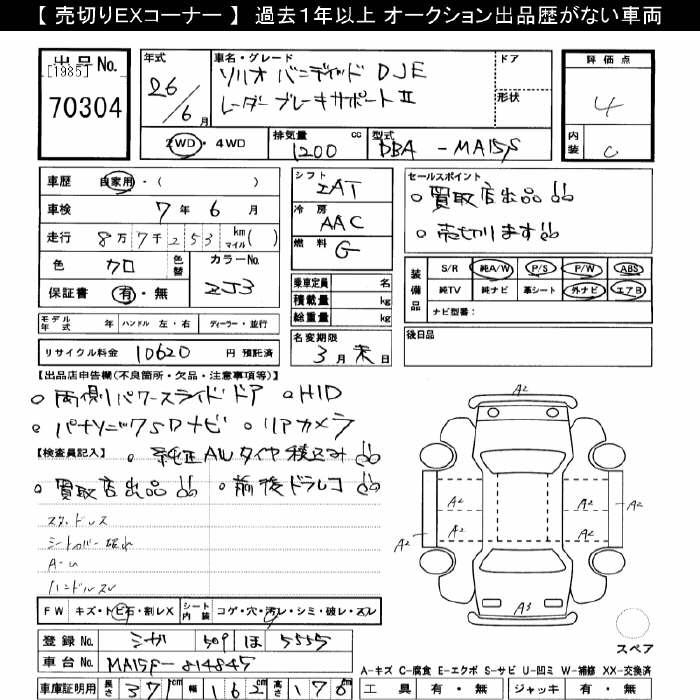 【 売切りEXコーナー 】 過去1年以上 オークション出品歴がない車両
出品No. [1985] 70304
年式 26/6月
車名・グレード ソリオ バンディッド DJE
レーダーブレーキサポートⅡ
ドア
形状
評価点 4
内装 C
2WD ・ 4WD
排気量 1200 cc
型式 DBA - MA15S
車歴 自家用・( )
車検 7年 6月
走行 8万7千253 km マイル ( )
色 クロ 色替
カラーNo. ZJ3
保証書 有・無
シフト IAT
冷房 AAC
燃料 G
乗車定員 名
積載量 kg
総重量 kg
セールスポイント
。買取店出品!!
。売切ります!!
装備品 S/R 純A/W P/S P/W ABS
純TV 純ナビ 革シート 外ナビ エアB
ナビ型番:
モデル年式 年 ハンドル 左・右 ディーラー・並行
リサイクル料金 10620 円 預託済
名変期限 3月末日
後日品
【出品店申告欄(不良箇所・欠品・注意事項等)】
。両側パワースライドドア 。HID
。パナソニックSDナビ 。リアカメラ
【検査員記入】 。純正AWタイヤ積込み!!
。買取店出品!! 。前後ドラレコ!!
シートカバー破れ
ハンドルスレ
FW キズ・トビ石・割レX シート内装 コゲ・穴・汚レ・シミ・破レ・スレ
登録No. シガ 509 ほ 5555
車台No. MA15S-814845
車庫証明用 長さ 371cm 幅 162cm 高さ 176cm
A2
A2
A2
A2
A2
A2
A2
A3
スペア
A-キズ C-腐食 E-エクボ S-サビ U-凹ミ W-補修 XX-交換済
工具 有・無 ジャッキ 有・無